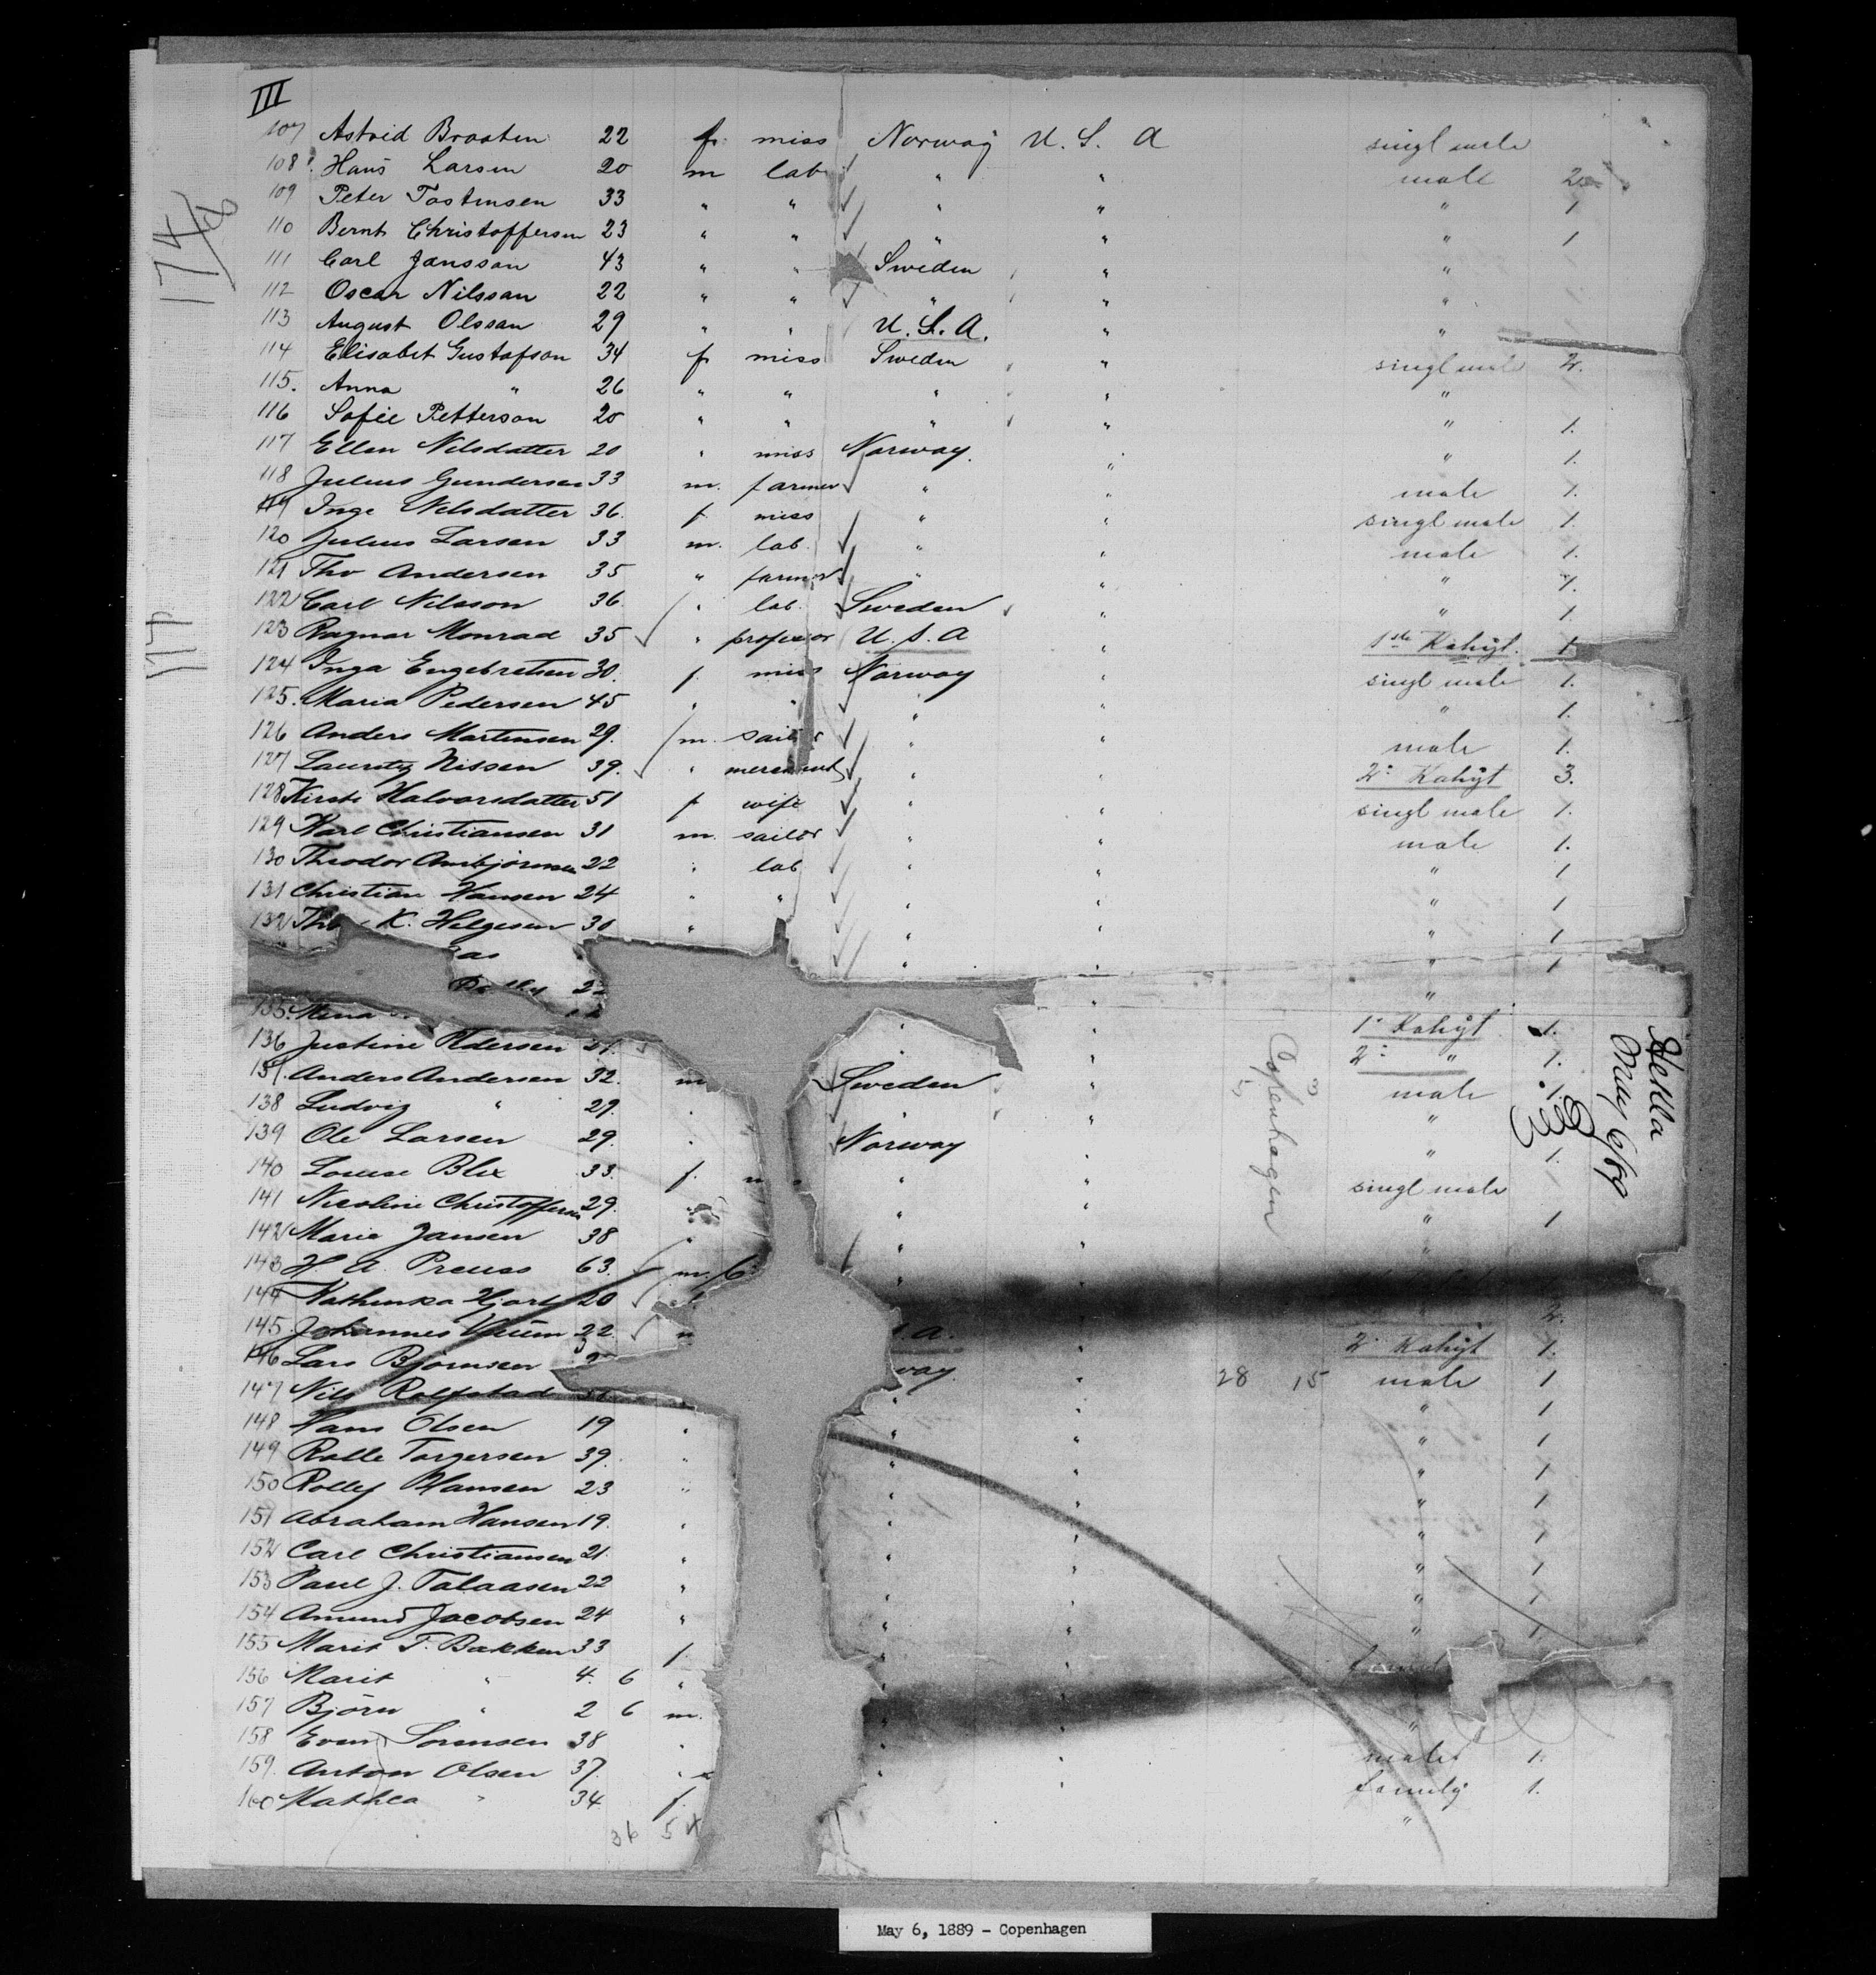 III
107 Astrid Braaten 22 f. miss Norway U. S. A singl male
108 Hans Larsen 20 m lab " " male 2
109 Peter Tostensen 33 " " " " " 1
110 Bernt Christoffersen 23 " " " " " 1
111 Carl Jansson 43 " " Sweden " "
112 Oscar Nilssan 22 " " " " "
113 August Olssan 29 " " U. S. A. " "
114 Elisabet Gustafson 34 f miss Sweden " singl male 2.
115. Anna " 26 " " " " "
116 Sofie Petterson 20 " " " " " 1.
117 Ellen Nilsdatter 20 " miss Norway. " " 1.
118 Julius Gundersen 33 m. farmer " " male 1.
119 Inge Nelsdatter 36. f miss " " singl male 1.
120 Julius Larsen 33 m. lab. " " male 1.
121 Tho Andersen 35 " farmer " " " 1.
122 Carl Nilsson 36. " lab. Sweden " " 1.
123 Ragnar Monrad 35 " professor U. S. A " 1ste Kahyt. 1
124 Inga Engebretsen 30. f. miss Norway " singl male 1.
125. Maria Pedersen 45 " " " " " 1.
126 Anders Martinsen 29. m. sailor " " male 1.
127 Lauritz Nissen 39. " merchant " " 2" Kahyt 3.
128 Kirsti Halvorsdatter 51 f wife " " singl male 1.
129 Karl Christiansen 31 m. sailor " " male 1.
130 Theodor 22 " lab " " " 1
131 Christian Hansen 24 " " " " " 1
132 K. Helgesen 30 " " " " 1
as " " " 1
" "
135. Mina " " 1" Kahyt 1.
136 Justine Pedersen " 2" " 1.
137. Anders Andersen 32. m Sweden " male 1.
138 Ludvig " 29. " " " "
139 Ole Larsen 29. " Norway " " 1.
140 Louise Blix 33. f. m " " singl male
141 Nicoline Christoffersen 29. " " " " 1
142 Marie Jansen 38 " " " "
143 H. A. Preuss 63. m. "
144 Kathinka Hjort 20
2.
145. Johannes 22 .A. 2" Kahyt 1.
146 Lars Bjornsen way. " 28 15 male 1
147 Nils Rolfstad " " " 1
148 Hans Olsen 19 " " " " 1
149 Rolle Torgersen 39. " " " " 1
150 Rolley Hansen 23 " " " " 1
151 Abraham Hansen 19. " " " " 1
152 Carl Christiansen 21. " " " " 1
153 Paul J. Talaasen 22 " " " " 1
154 Amund Jacobsen 24 " " " " 1
155 Marit T. Bakken 33 f. " "
156 Marit " 4. 6 " " "
157 Björn " 2 6 m. " " "
158 Even Sorensen 38 " " " male 1.
159. Anton Olsen 37. " " " family 1.
160 Mathea " 34. f. "
36 5
174
117
Copenhagen
3
Hekla
May 6/89
May 6, 1889 - Copenhagen